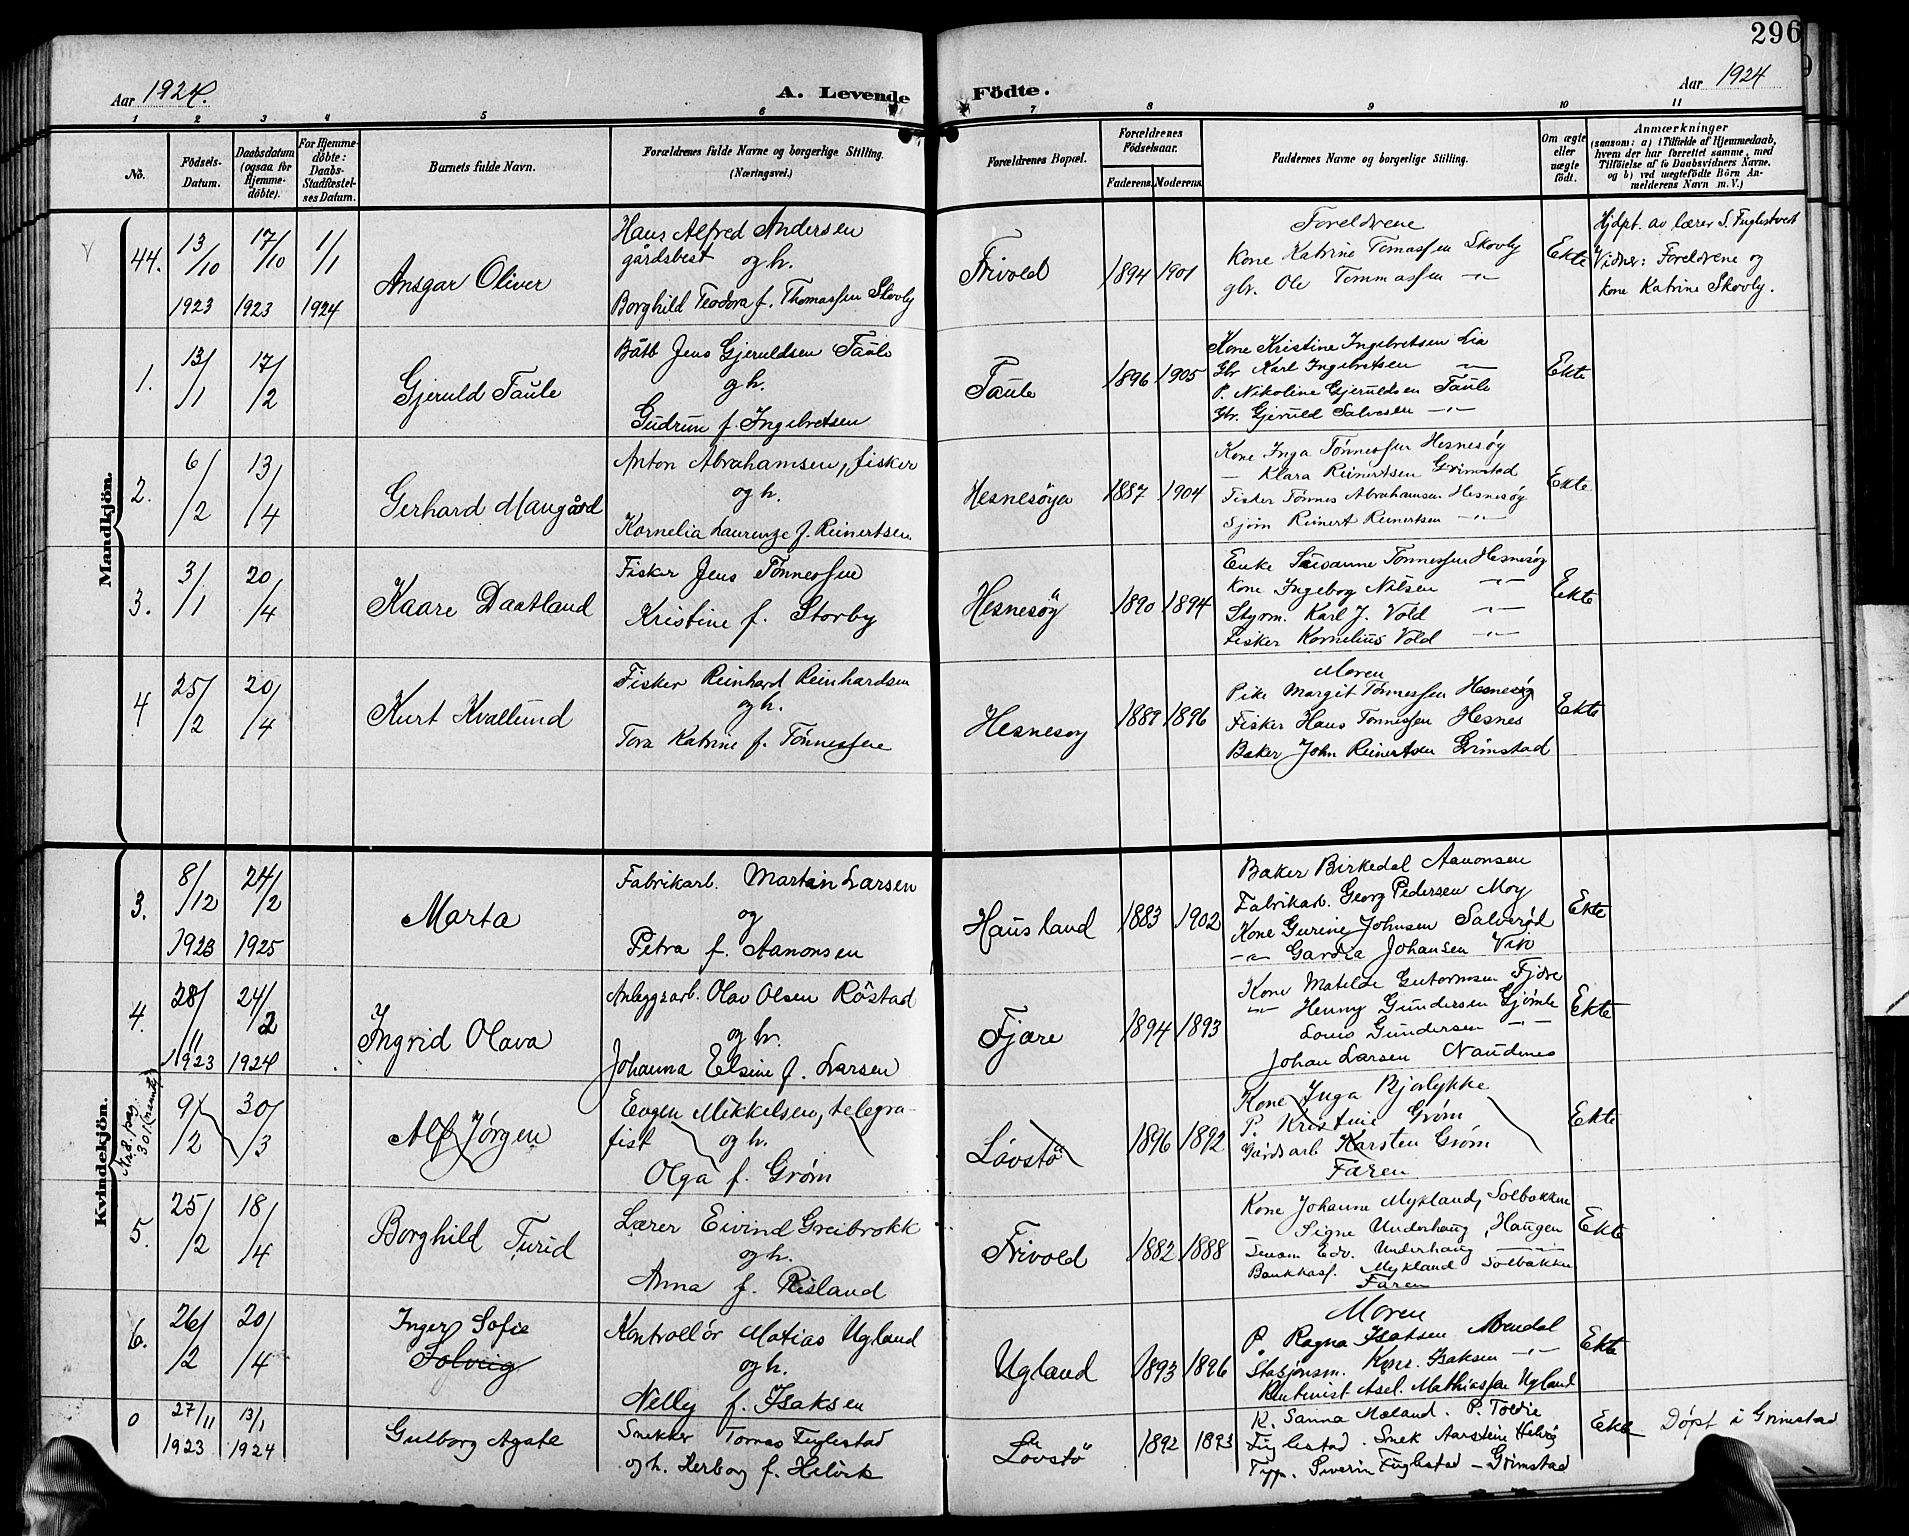 296
Aar 1924.
A. Levende Födte.
Aar 1924
1 2 3 4 5 6 7 8 9 10 11
No.
Födsels-
Datum.
Daabsdatum
(ogsaa for
Hjemme-
döbte).
For Hjemme-
döbte:
Daabs-
Stadfæstel-
ses Datum.
Barnets fulde Navn.
Forældrenes fulde Navne og borgerlige Stilling.
(Næringsvei.)
Forældrenes Bopæl.
Forældrenes
Födselsaar.
Faderens. Moderens.
Faddernes Navne og borgerlige Stilling.
Om ægte
eller
uægte
födt.
Anmærkninger
(saasom: a) i Tilfælde af Hjemmedaab,
hvem der har forrettet samme, med
Tilföielse af to Daabsvidners Navne.
og b) ved uægtefödte Börn An-
melderens Navn m. V.)
Mandkjön.
44.
13/10
1923
17/10
1923
1/1
1924
Ansgar Oliver
Hans Alfred Andersen
gårdsbest og h.
Borghild Teodora f. Thomassen Skovly
Frivold
1894 1901
Foreldrene
Kone Katrine Tomassen Skovly
gbr. Ole Tommassen -"-
Ekte
Hjdpt. av lærer S. Fuglestvedt
Vidner: Foreldrene og
kone Katrine Skovly.
1.
13/1
17/2
Gjeruld Taule
Båtb Jens Gjeruldsen Taule
og h.
Gudrun f. Ingebretsen
Taule
1896 1905
Kone Kristine Ingebretsen Lia
Gbr Karl Ingebretsen -"-
P. Nikoline Gjeruldsen Taule
Gbr. Gjeruld Salvesen -"-
Ekte
2.
6/2
13/4
Gerhard Maugård
Anton Abrahamsen, fisker
og h.
Kornelia Laurenze f. Reinertsen
Hesnesøya
1887 1904
Kone Inga Tønnessen Hesnesøy
— Klara Reinertsen Grimstad
Fisker Tønnes Abrahamsen Hesnesøy
Sjøm Reinert Reinertsen -"-
Ekte
3.
3/1
20/4
Kaare Daatland
Fisker Jens Tønnessen
Kristine f. Storby
Hesnesøy
1890 1894
Enke Susanne Tønnessen Hesnesøy
Kone Ingeborg Nilsen -"-
Styrm. Karl J. Vold -"-
Fisker Kornelius Vold -"-
Ekte
4
25/2
20/4
Kurt Kvallund
Fisker Reinhard Reinhardsen
og h.
Tora Katrine f. Tønnessen
Hesnesøy
1889 1896
Moren
Pike Margit Tønnessen Hesnesøy
Fisker Hans Tønnessen Hesnes
Baker John Reinertsen Grimstad
Ekte
Kvindekjön.
3.
8/12
1923
24/2
1925
Marta
Fabrikarb. Martin Larsen
og
Petra f. Aanonsen
Hausland
1883 1902
Baker Birkedal Aanonsen
Fabrikarb. Georg Pedersen Moy
Kone Gurine Johnsen Salverød
-"- Gardia Johansen Vik
Ekte
4.
28/11
1923
24/2
1924
Ingrid Olava
Anleggsarb. Olav Olsen Röstad
og h.
Johanna Elsine f. Larsen
Fjære
1894 1893
Kone Matilde Gutormsen Fjære
-"- Henny Gundersen Gjømle
Louis Gundersen -"-
Johan Larsen Naudenes
Ekte
Nr. 8. pag.
301
9/2
30/3
Alf Jørgen
Evgen Mikkelsen, telegra-
fist og h.
Olga f. Grøm
Løvstø
1896 1892
Kone Inga Bjorlykke
P. Kristine Grøm
Gårdsarb Karsten Grøm
Faren
Ekte
5.
25/2
18/4
Borghild Turid
Lærer Eivind Greibrokk
og h.
Anna f. Risland
Frivold
1882 1888
Kone Johanne Mykland, Solbakken
Signe Underhaug, Haugen
Sensm Edv. Underhaug -"-
Bankkass. Mykland Solbakken
Faren
Ekte
6.
26/2
20/4
Inger Sofie
Solveig
Kontrollør Matias Ugland
og h.
Nelly f. Isaksen
Ugland
1893 1896
Moren
P. Ragna Isaksen Arendal
Stasjonsm. Kons. Isaksen -"-
Kontorist Asel. Mathiassen Ugland
Ekte
0
27/11
1923
13/1
1924
Gulborg Agate
Snekker Tomas Fuglestad
og h. Herborg f. Helvik
Løvstø
1892 1893
K. Sanna Mæland. P. Toldie
Fuglestad. Snek Aarstein Helvig
Typ. Siverin Fuglestad – Grimstad
Ekte
Døpt i Grimstad